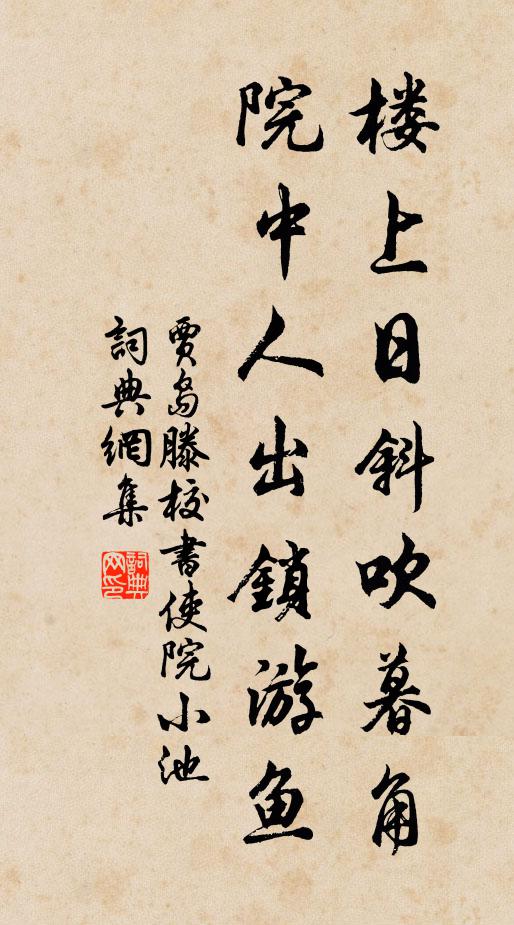 楼上日斜吹暮角
院中人出鎖游鱼
賈島滕校書使院小池
詞典網集
詞典网印